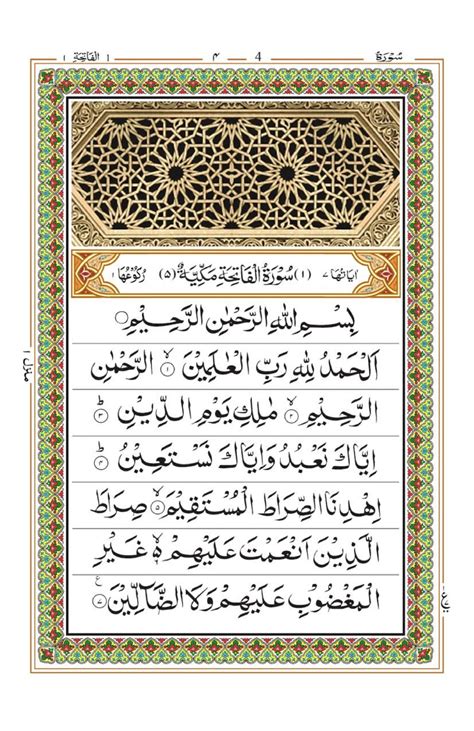 سُوْرَۃ 4 ۴ الفَاتِحَۃِ ۱
اٰیَاتُهَا ۷ (۱) سُوْرَۃُ الْفَاتِحَۃِ مَکِّیَّۃٌ (۵) رُکُوْعُهَا ۱
بِسْمِ اللّٰهِ الرَّحْمٰنِ الرَّحِیْمِ
اَلْحَمْدُ لِلّٰهِ رَبِّ الْعٰلَمِیْنَ ۙ﴿۱﴾ الرَّحْمٰنِ
الرَّحِیْمِ ۙ﴿۲﴾ مٰلِكِ یَوْمِ الدِّیْنِ ؕ﴿۳﴾
اِیَّاكَ نَعْبُدُ وَاِیَّاكَ نَسْتَعِیْنُ ؕ﴿۴﴾
اِهْدِنَا الصِّرَاطَ الْمُسْتَقِیْمَ ۙ﴿۵﴾ صِرَاطَ
الَّذِیْنَ اَنْعَمْتَ عَلَیْهِمْ ۙ۬ غَیْرِ
الْمَغْضُوْبِ عَلَیْهِمْ وَلَا الضَّآلِّیْنَ ﴿۷﴾
منزل ۱